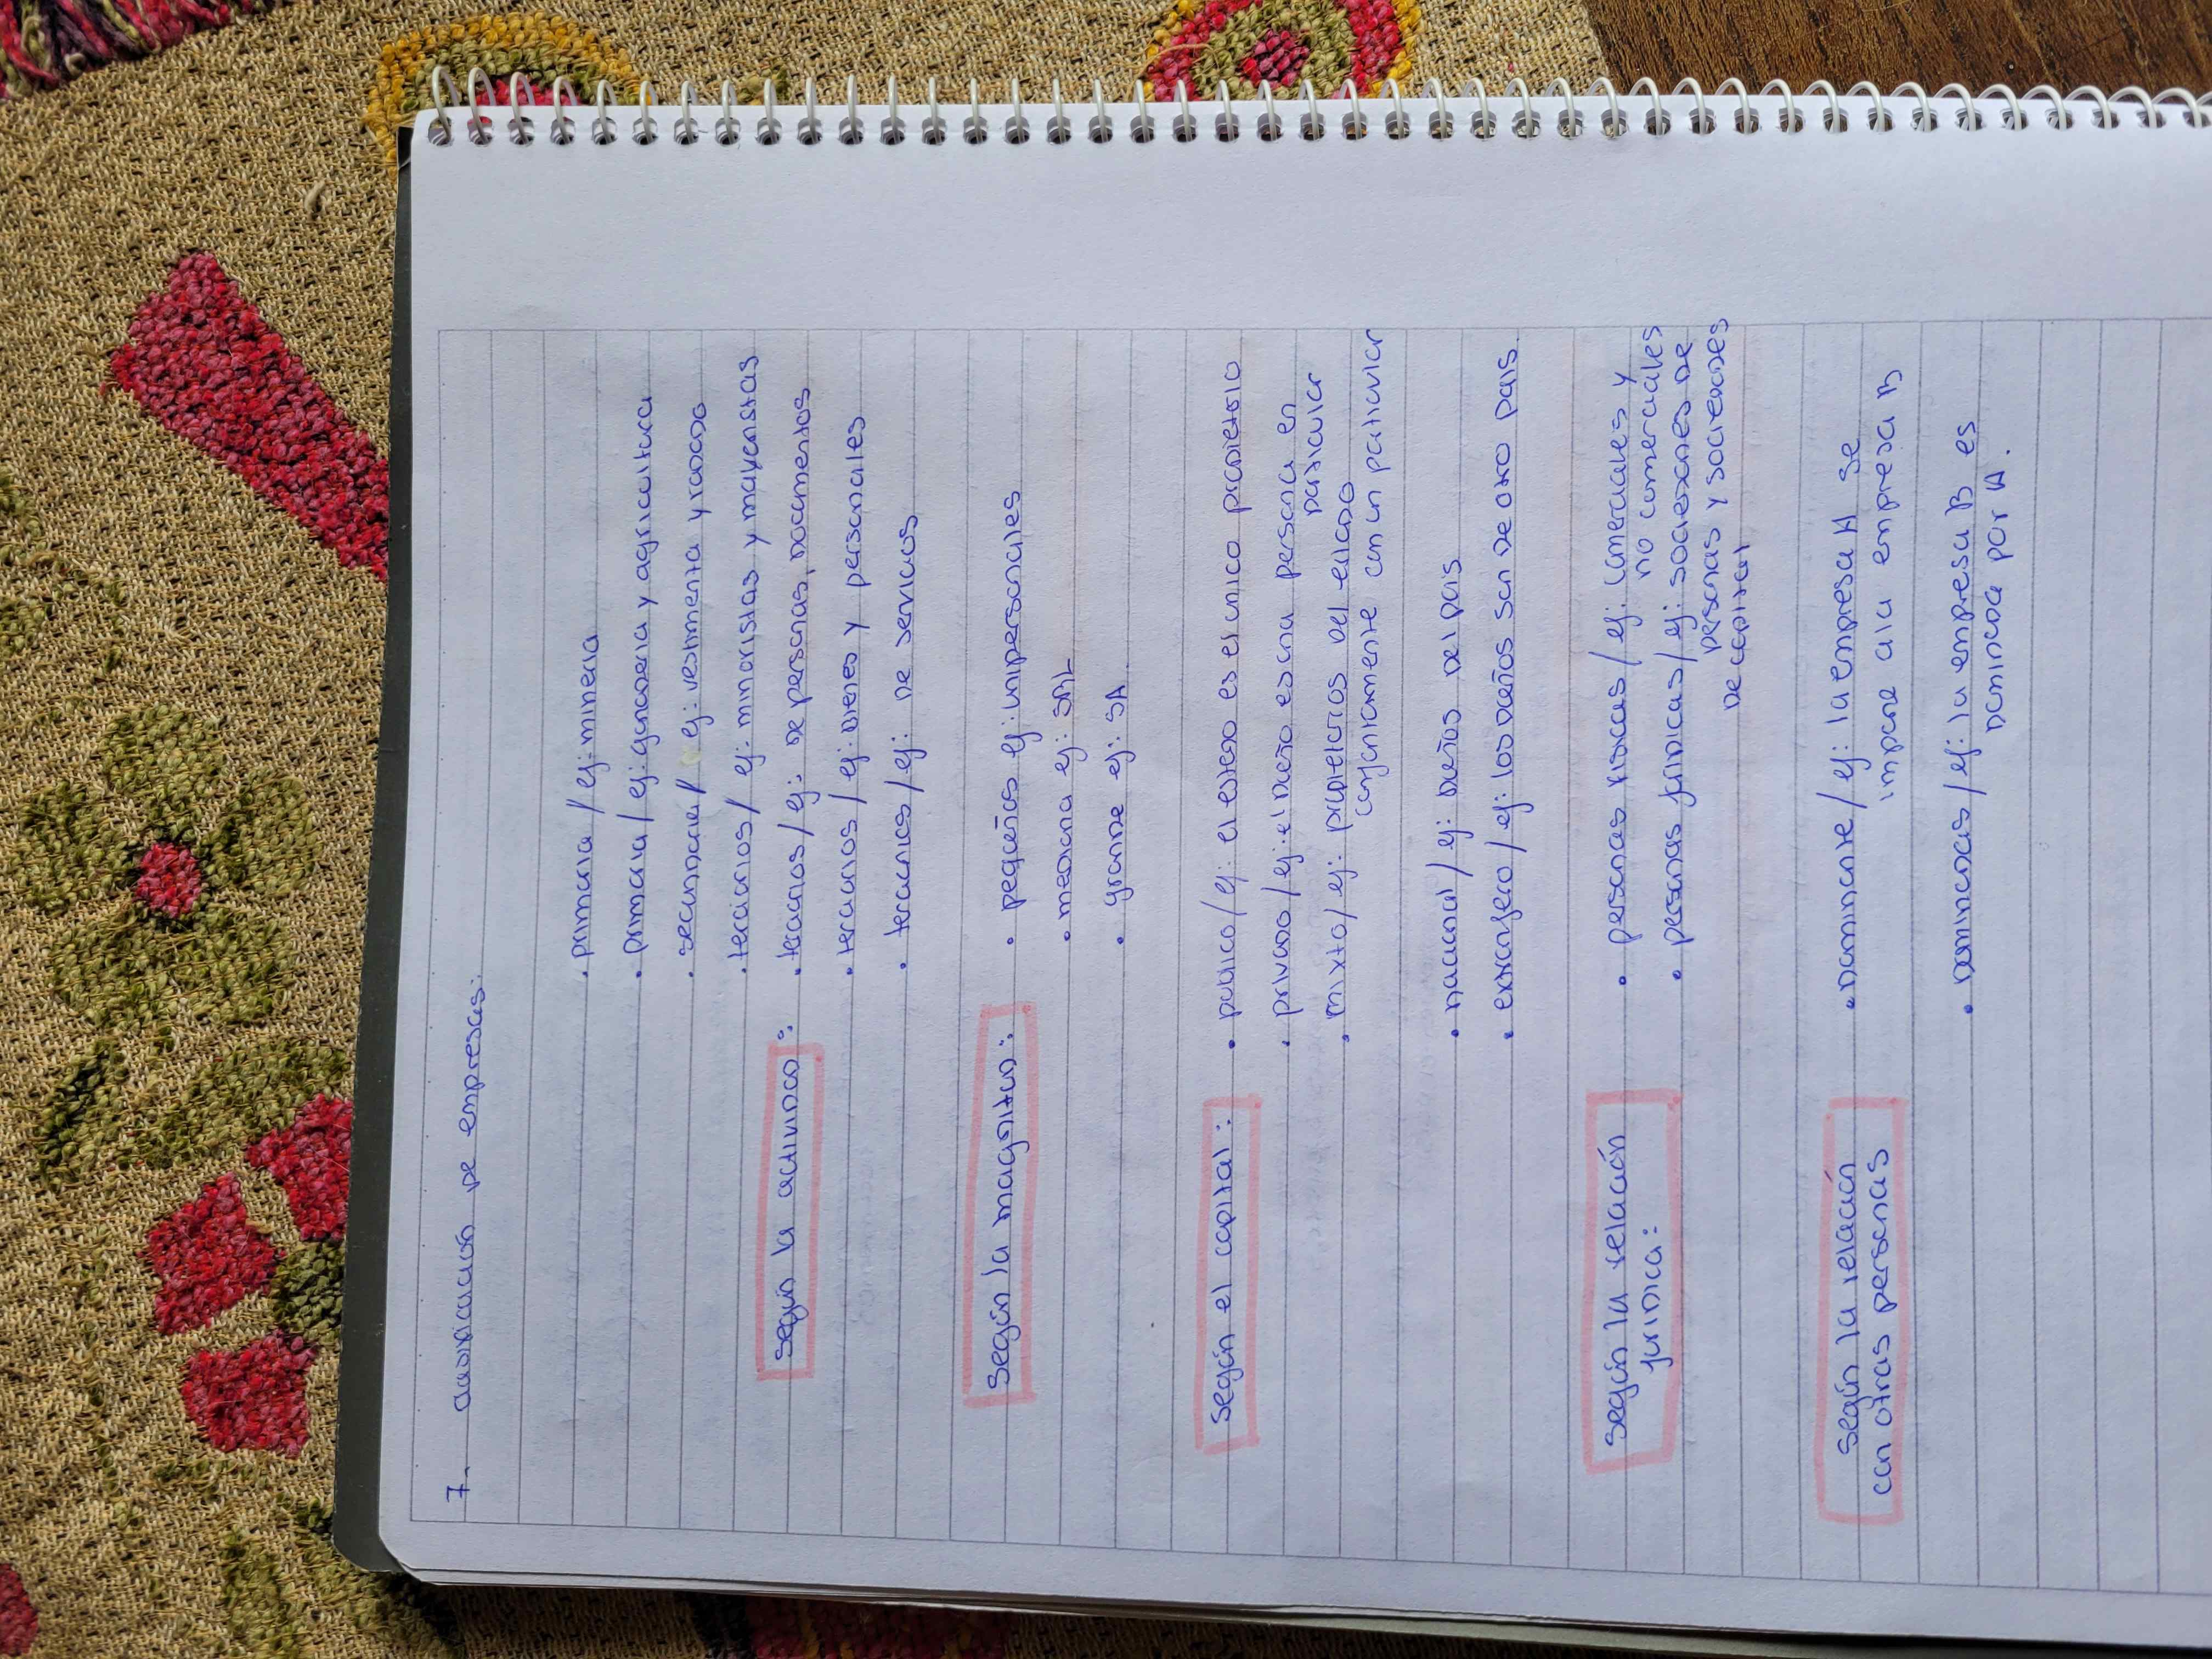 7. clasificación de empresas:
• primaria / ej: mineria
• primaria / ej: ganaderia y agricultura
• secundaria / ej: vestimenta y calzado
• terciarios / ej: minoristas y mayoristas
según la actividad: • terciarios / ej: de personas, documentos
• terciarios / ej: bienes y personales
• terciarios / ej: de servicios
según la magnitud: • pequeños ej: unipersonales
• mediana ej: SRL
• grande ej: SA.
según el capital: • publico / ej: el estado es el unico propietario
• privado / ej: el dueño es una persona en
particular
• mixto / ej: propietarios del estado
conjuntamente con un particular
• nacional / ej: dueños del pais
• extranjero / ej: los dueños son de otro pais.
según la relación • personas fisicas / ej: comerciales y
no comerciales
jurídica: • personas jurídicas / ej: sociedades de
personas y sociedades
de capital
según la relación • dominante / ej: la empresa A se
con otras personas impone a la empresa B
• dominadas / ej: la empresa B es
dominada por A.